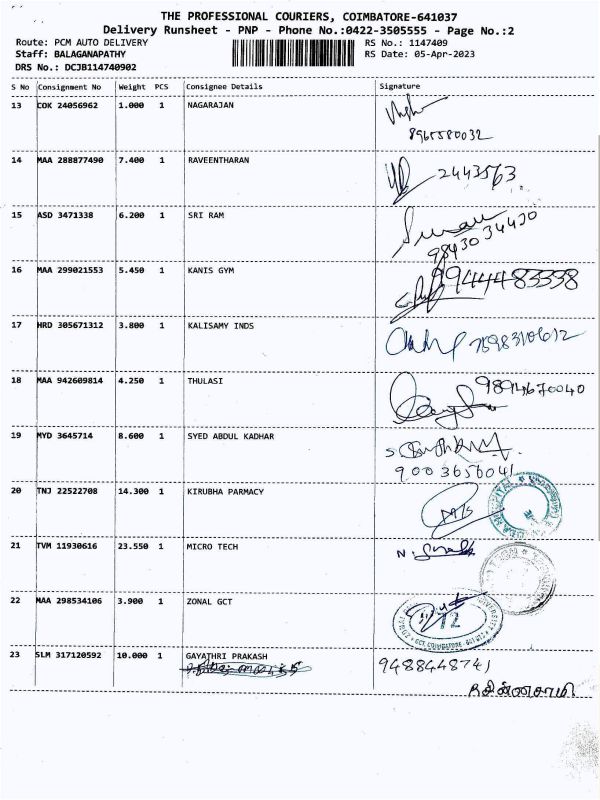 THE PROFESSIONAL COURIERS, COIMBATORE-641037
Delivery Runsheet - PNP - Phone No.:0422-3505555 - Page No.:2
Route: PCM AUTO DELIVERY RS No.: 1147409
Staff: BALAGANAPATHY RS Date: 05-Apr-2023
DRS No.: DCJB114740902
S No Consignment No Weight PCS Consignee Details Signature
13 COK 24056962 1.000 1 NAGARAJAN
8965580032
14 MAA 288877490 7.400 1 RAVEENTHARAN 2443563
15 ASD 3471338 6.200 1 SRI RAM
98430 34430
16 MAA 299021553 5.450 1 KANIS GYM 9944483338
17 HRD 305671312 3.800 1 KALISAMY INDS 7598310612
18 MAA 942609814 4.250 1 THULASI 9894670040
19 MYD 3645714 8.600 1 SYED ABDUL KADHAR
9003656041
20 TNJ 22522708 14.300 1 KIRUBHA PARMACY
21 TVM 11930616 23.550 1 MICRO TECH
22 MAA 298534106 3.900 1 ZONAL GCT
12
23 SLM 317120592 10.000 1 GAYATHRI PRAKASH 9488448741
சின்னசாமி